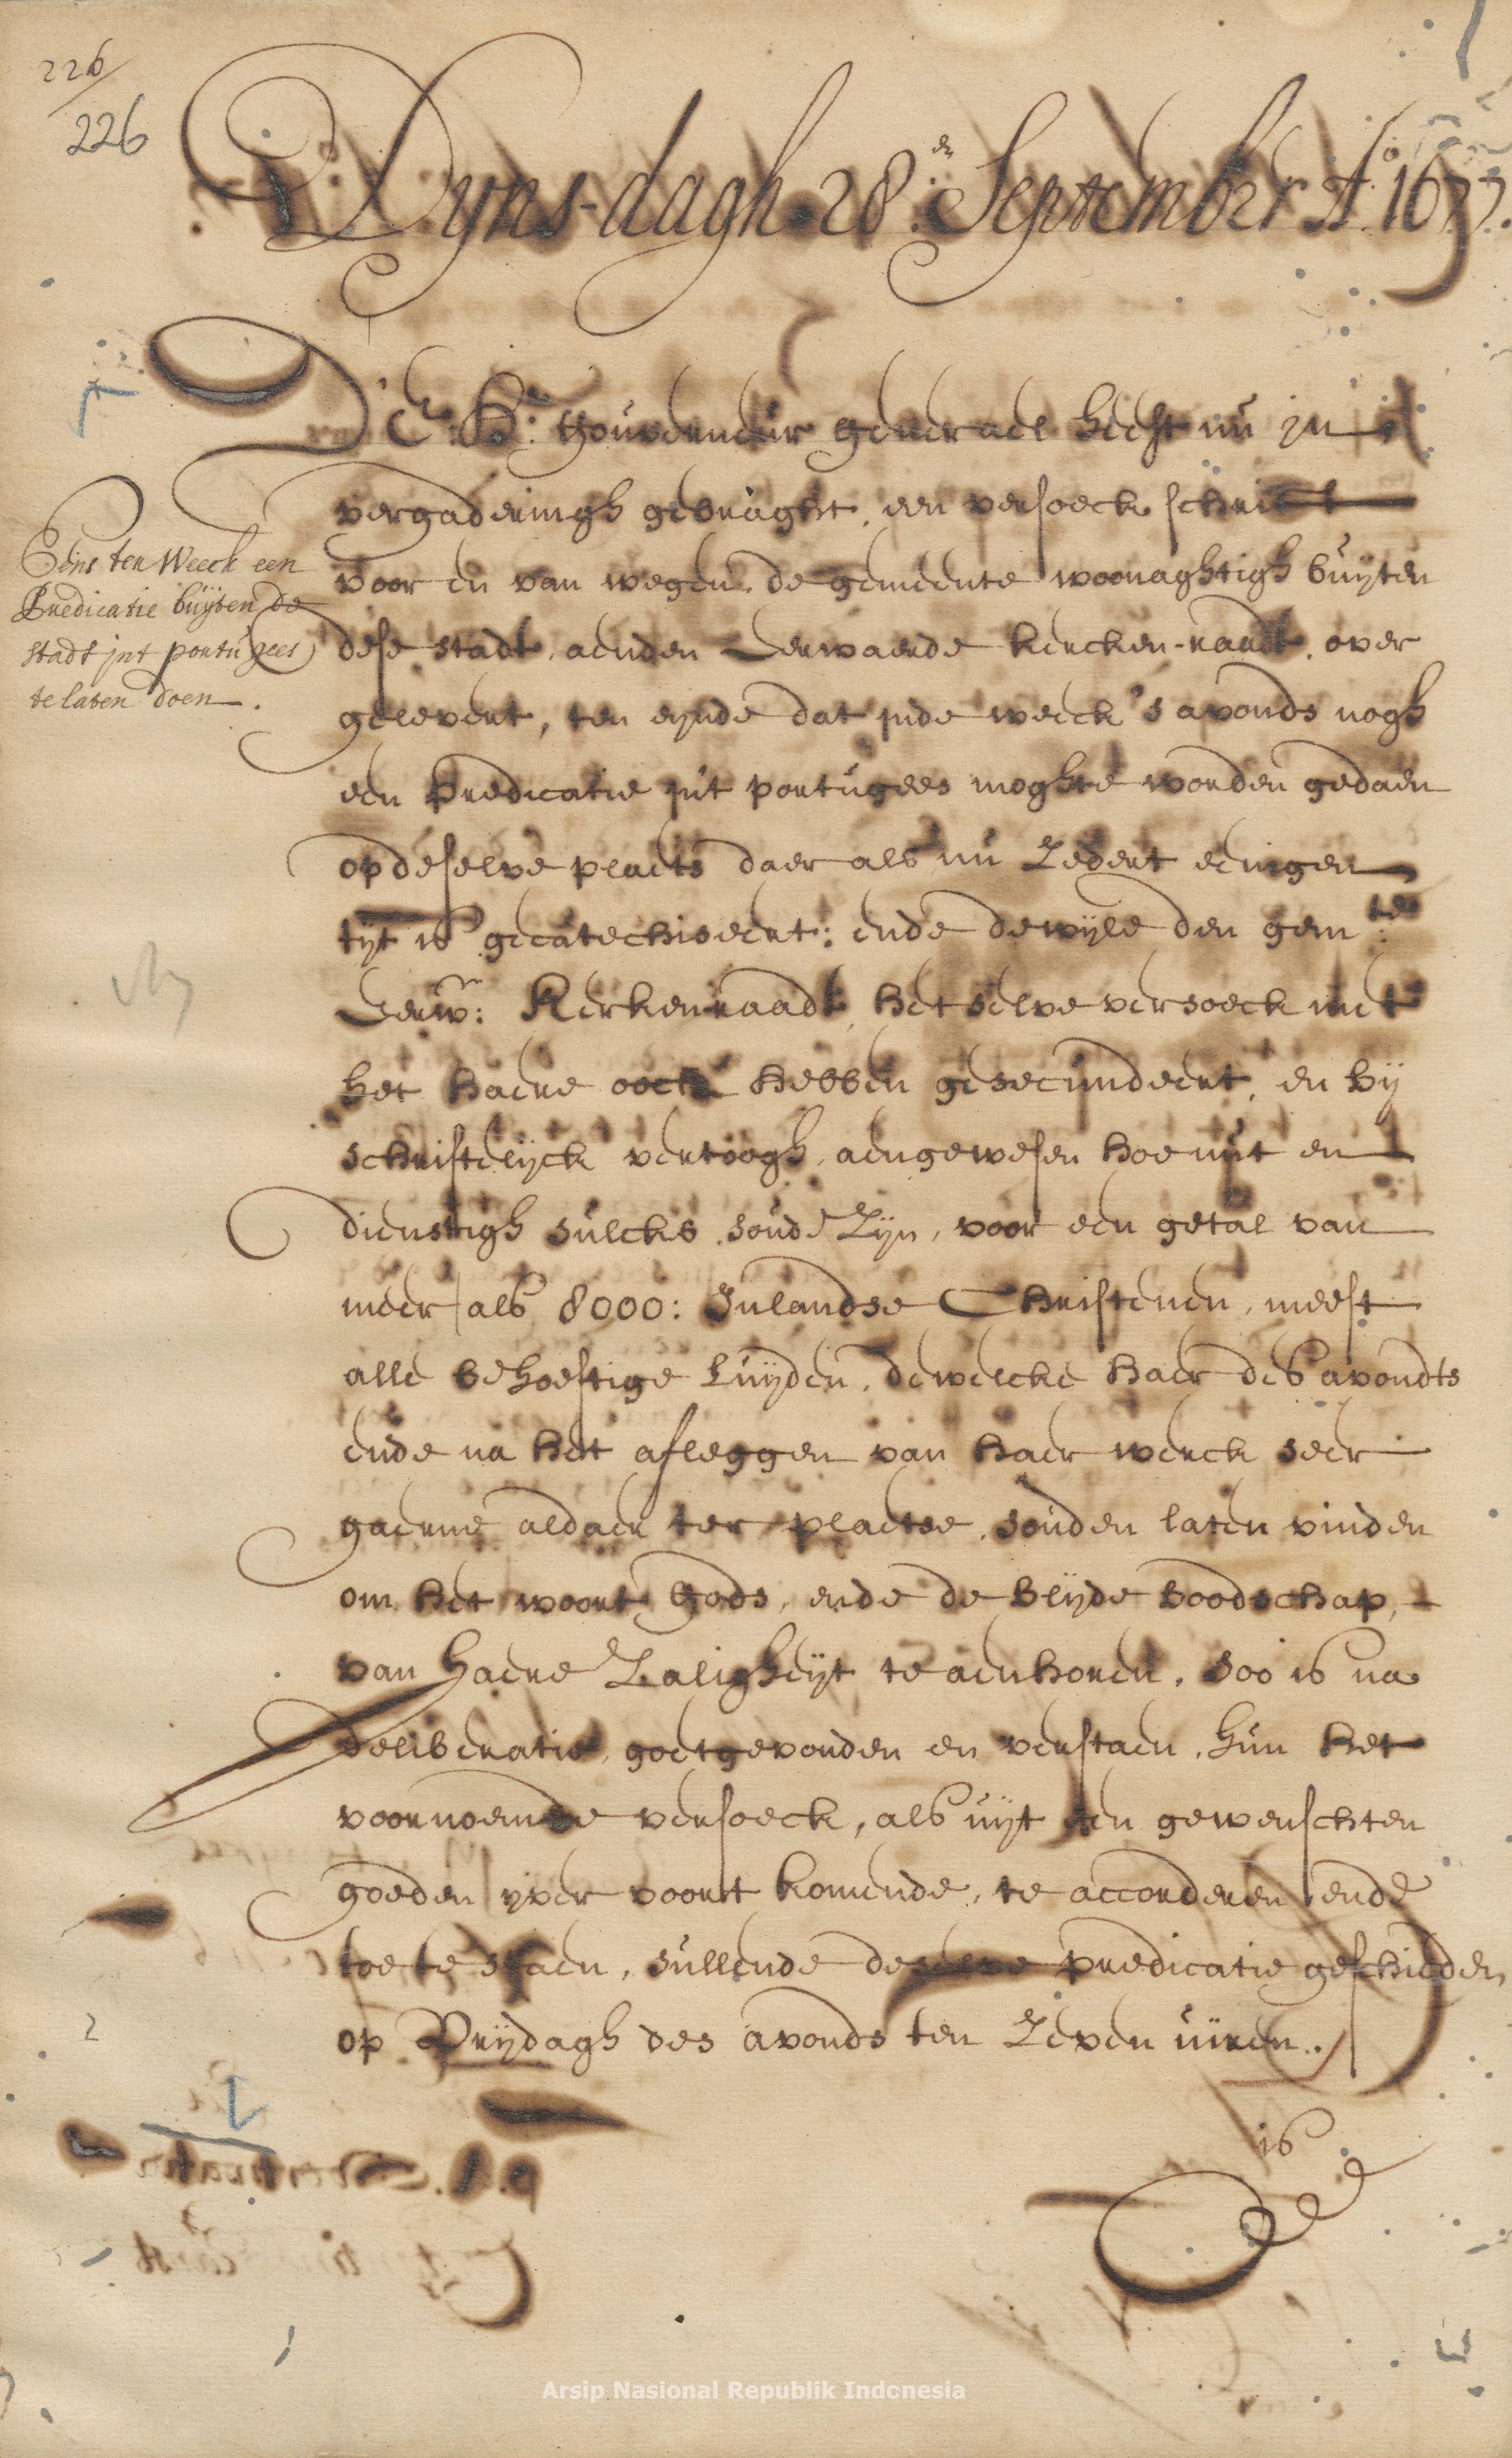 226
226
Dijns-dagh 28.en September Ao. 1677.
De Hr. Gouverneur generael heeft nu in
vergaderingh gebraght, een versoeck schrift
Eens ter Weeck een
Predicatie buijten de
stadt int portugees
te laten doen.
voor en van wegen de gemeente woonaghtigh buijten
dese stadt, aen den Eerwaerde kercken-raadt over
gelevert, ten eijnde dat inde weeck 's avonds nogh
een predicatie int portugees moghte worden gedaen
op deselve plaets daer als nu Zedert eenigen
tijt is gecatechiseert: ende dewijle den gem:te
Eerw: Kerkenraadt, het selve versoeck met
het haere oock hebben gesecundeert, en bij
schriftelijck vertoogh, aengewesen hoe nut en
dienstigh sulcks soude Zijn, voor een getal van
meer als 8000: Inlandse Christenen, meest
alle behoeftige luijden, dewelcke haer des avondts
ende na het afleggen van haer werck seer
gaerne aldaer ter plaetse, souden laten vinden
om het woort Gods, ende de blijde boodschap,
van haere Zaligheijt te aenhoren. Soo is na
deliberatie, goetgevonden en verstaen, hun het
voornoemde versoeck, als uijt een gewenschten
goeden ijver voort komende, te accorderen ende
toe te staen, sullende deselve predicatie geschieden
op Vrijdagh des avonds ten Zeven uiren.
is
Arsip Nasional Republik Indonesia